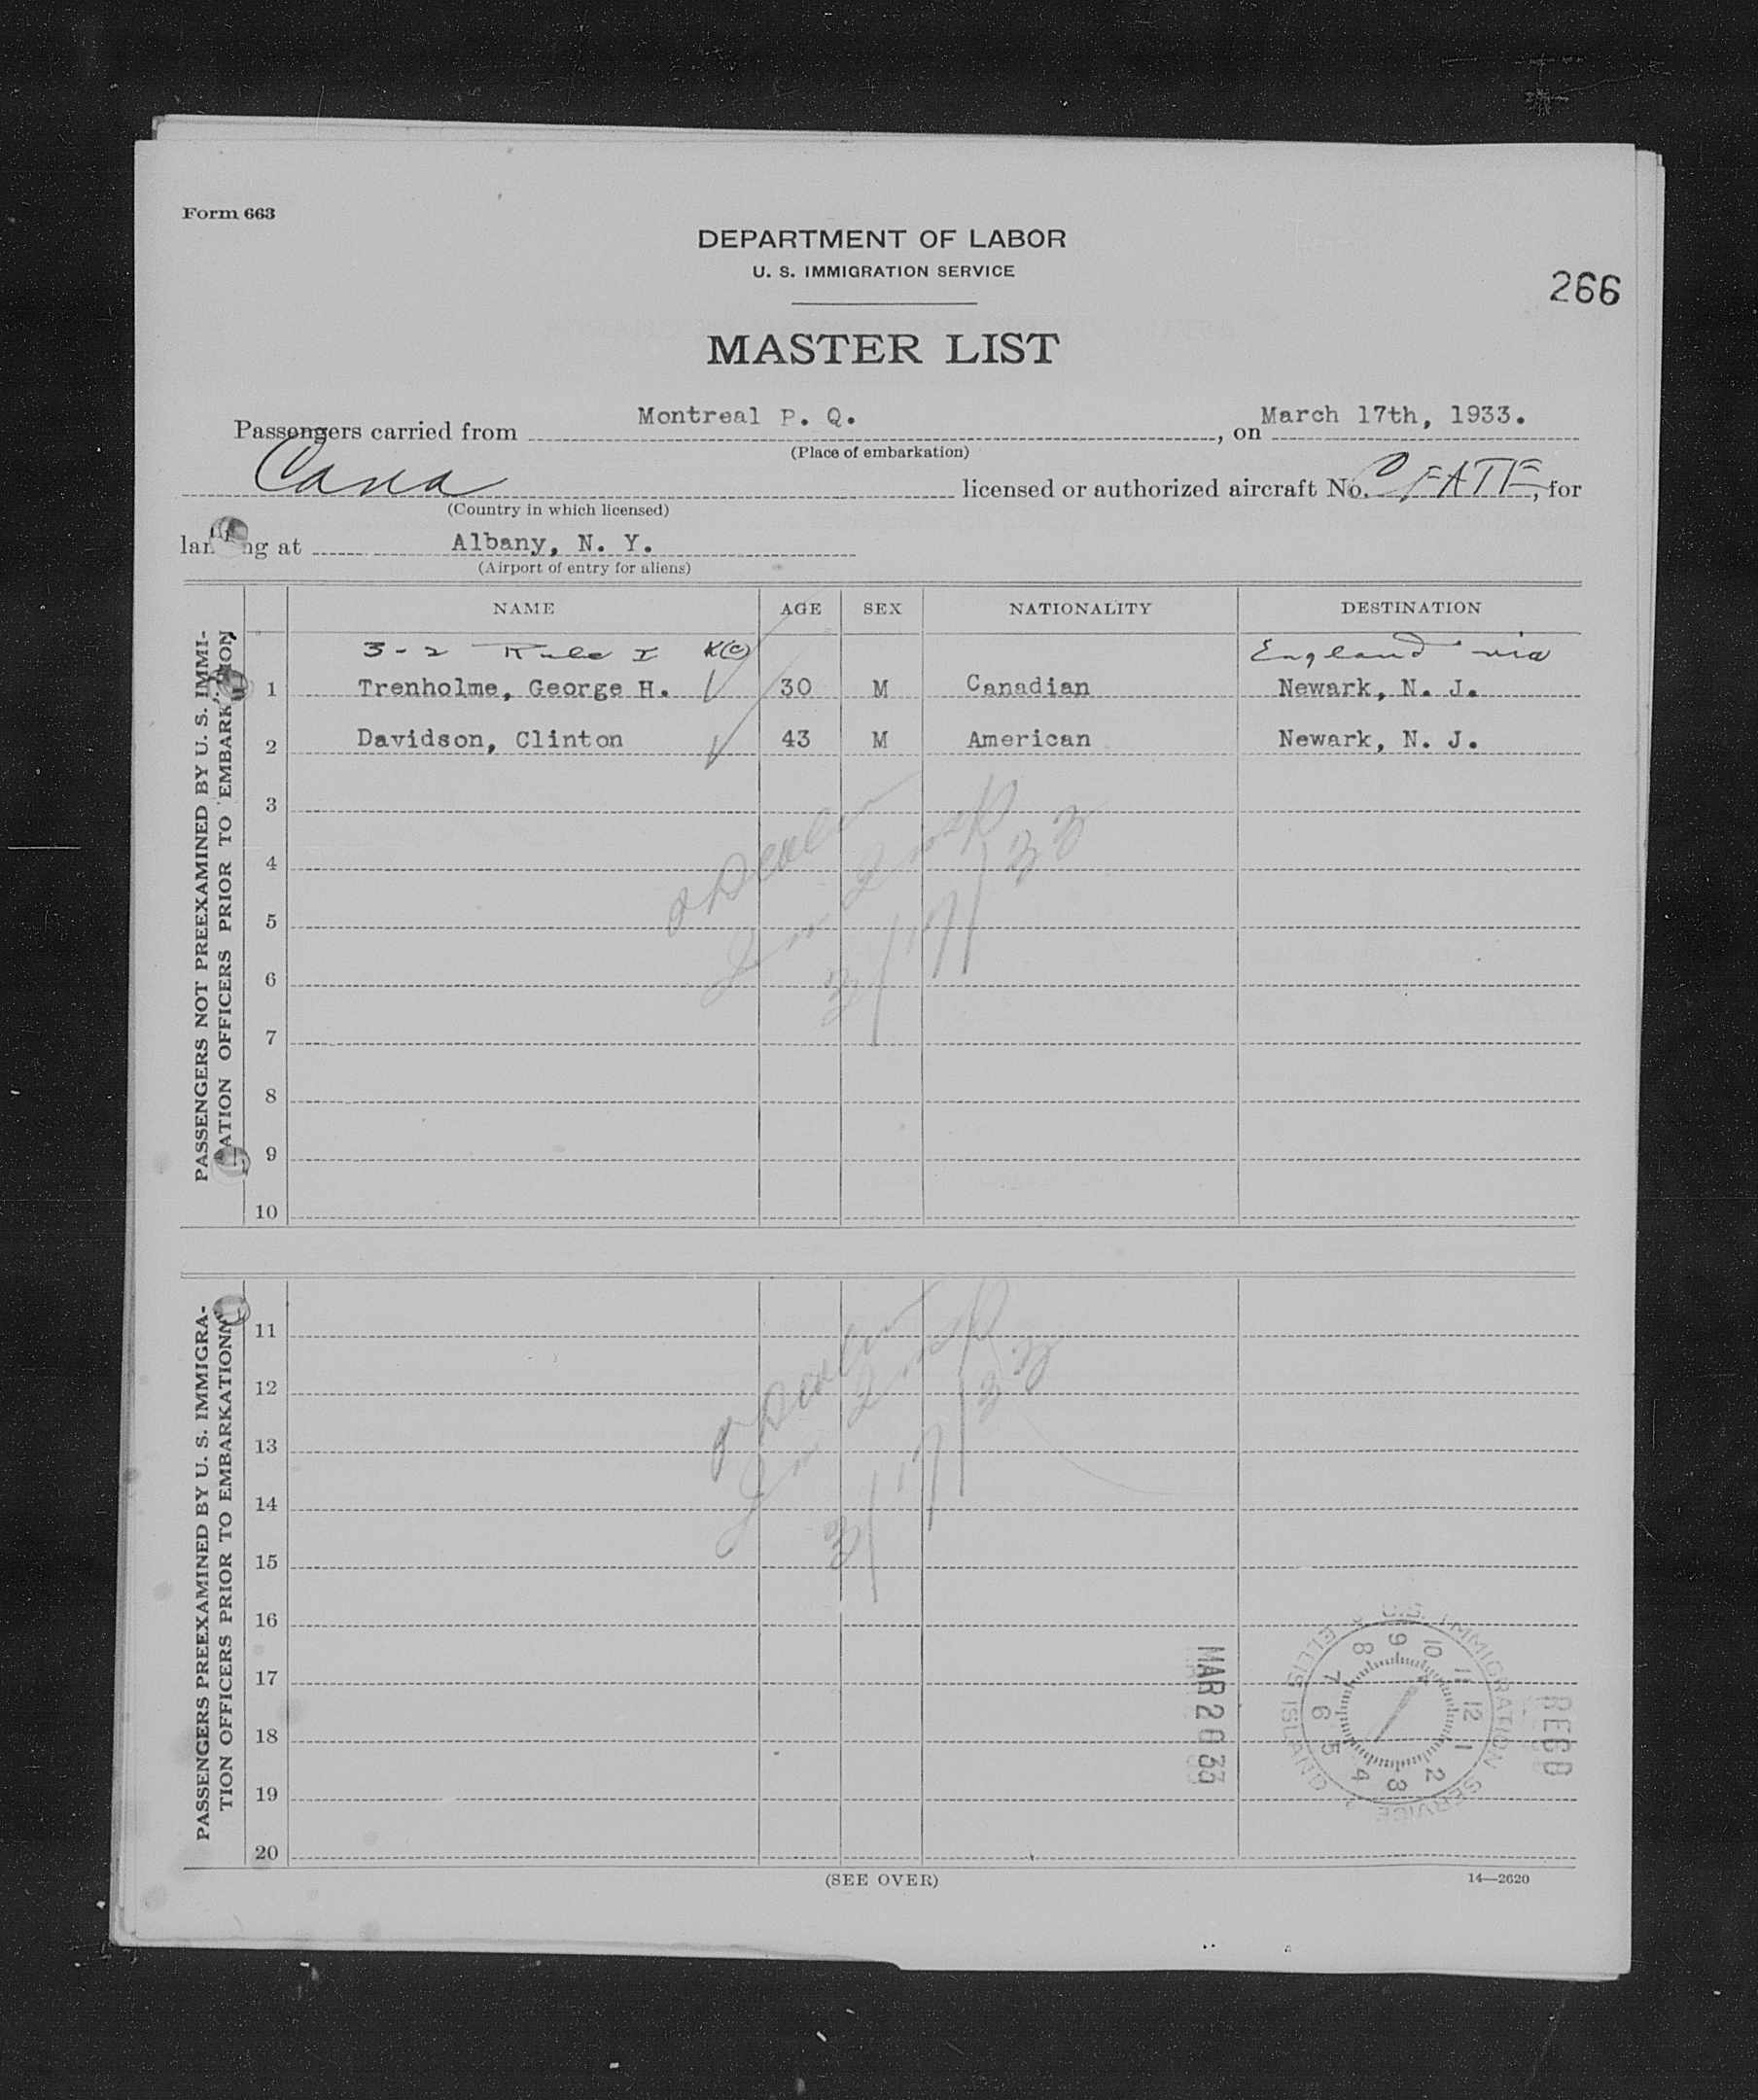 Form 663
DEPARTMENT OF LABOR
U. S. IMMIGRATION SERVICE
266
MASTER LIST
Passengers carried from Montreal P. Q., on March 17th, 1933.
(Place of embarkation)
Cana licensed or authorized aircraft No. CFATE, for
(Country in which licensed)
landing at Albany, N. Y.
(Airport of entry for aliens)
NAME AGE SEX NATIONALITY DESTINATION
3-2 Rule I K(c) England via
1 Trenholme, George H. 30 M Canadian Newark, N. J.
2 Davidson, Clinton 43 M American Newark, N. J.
3
4
5
6
7
8
9
10
PASSENGERS NOT PREEXAMINED BY U. S. IMMI-
GRATION OFFICERS PRIOR TO EMBARKATION
3/17/33
11
12
13
14
15
16
17
18
19
20
PASSENGERS PREEXAMINED BY U. S. IMMIGRA-
TION OFFICERS PRIOR TO EMBARKATION
3/17/33
MAR 20 33
U.S. IMMIGRATION SERVICE
ELLIS ISLAND
1 2 3 4 5 6 7 8 9 10 11 12
(SEE OVER)
14—2620